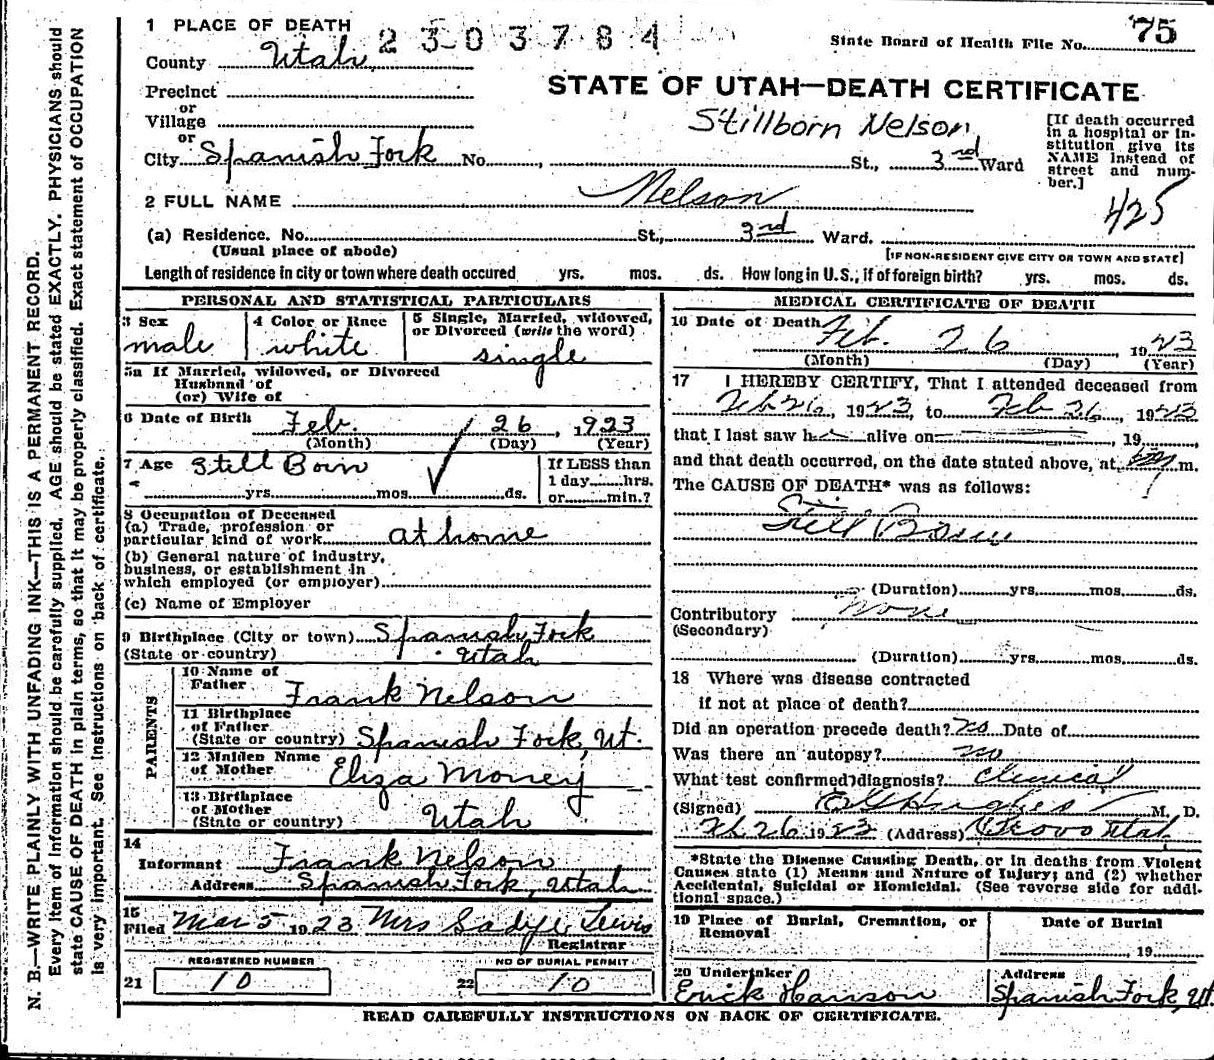 1 PLACE OF DEATH
2303784
State Board of Health File No. 75
County Utah
STATE OF UTAH—DEATH CERTIFICATE
Precinct
or
Village
or
Stillborn Nelson
City Spanish Fork No. , St., 3rd Ward
[If death occurred in a hospital or institution give its NAME instead of street and number.]
2 FULL NAME Nelson
425
(a) Residence. No. St., 3rd Ward.
(Usual place of abode)
[IF NON-RESIDENT GIVE CITY OR TOWN AND STATE]
Length of residence in city or town where death occured yrs. mos. ds. How long in U.S., if of foreign birth? yrs. mos. ds.
PERSONAL AND STATISTICAL PARTICULARS
3 Sex male
4 Color or Race white
5 Single, Married, widowed, or Divorced (write the word) single
5a If Married, widowed, or Divorced
Husband of
(or) Wife of
6 Date of Birth Feb. 26, 1923
(Month) (Day) (Year)
7 Age Still Born
yrs. mos. ds.
If LESS than
1 day hrs.
or min.?
8 Occupation of Deceased
(a) Trade, profession or
particular kind of work at home
(b) General nature of industry,
business, or establishment in
which employed (or employer)
(c) Name of Employer
9 Birthplace (City or town) Spanish Fork
(State or country) Utah
PARENTS
10 Name of
Father Frank Nelson
11 Birthplace
of Father
(State or country) Spanish Fork, Ut.
12 Maiden Name
of Mother Eliza Money
13 Birthplace
of Mother
(State or country) Utah
14
Informant Frank Nelson
Address Spanish Fork, Utah
15
Filed Mar 5 1923 Mrs Lewis
Registrar
REGISTERED NUMBER
21 10
NO OF BURIAL PERMIT
22 10
MEDICAL CERTIFICATE OF DEATH
16 Date of Death Feb. 26, 1923
(Month) (Day) (Year)
17 I HEREBY CERTIFY, That I attended deceased from
Feb 26, 1923, to Feb 26, 1923
that I last saw h alive on , 19 ,
and that death occurred, on the date stated above, at m.
The CAUSE OF DEATH* was as follows:
Still Born
(Duration) yrs. mos. ds.
Contributory None
(Secondary)
(Duration) yrs. mos. ds.
18 Where was disease contracted
if not at place of death?
Did an operation precede death? no Date of
Was there an autopsy? no
What test confirmed diagnosis? Clinical
(Signed) Hughes M. D.
Feb 26 1923 (Address) Provo Utah
*State the Disease Causing Death, or in deaths from Violent
Causes state (1) Means and Nature of Injury; and (2) whether
Accidental, Suicidal or Homicidal. (See reverse side for addi-
tional space.)
19 Place of Burial, Cremation, or
Removal
Date of Burial
, 19
20 Undertaker
Erick Hanson
Address
Spanish Fork, Ut.
READ CAREFULLY INSTRUCTIONS ON BACK OF CERTIFICATE.
N. B.—WRITE PLAINLY WITH UNFADING INK—THIS IS A PERMANENT RECORD.
Every item of information should be carefully supplied. AGE should be stated EXACTLY. PHYSICIANS should
state CAUSE OF DEATH in plain terms, so that it may be properly classified. Exact statement of OCCUPATION
is very important. See instructions on back of certificate.